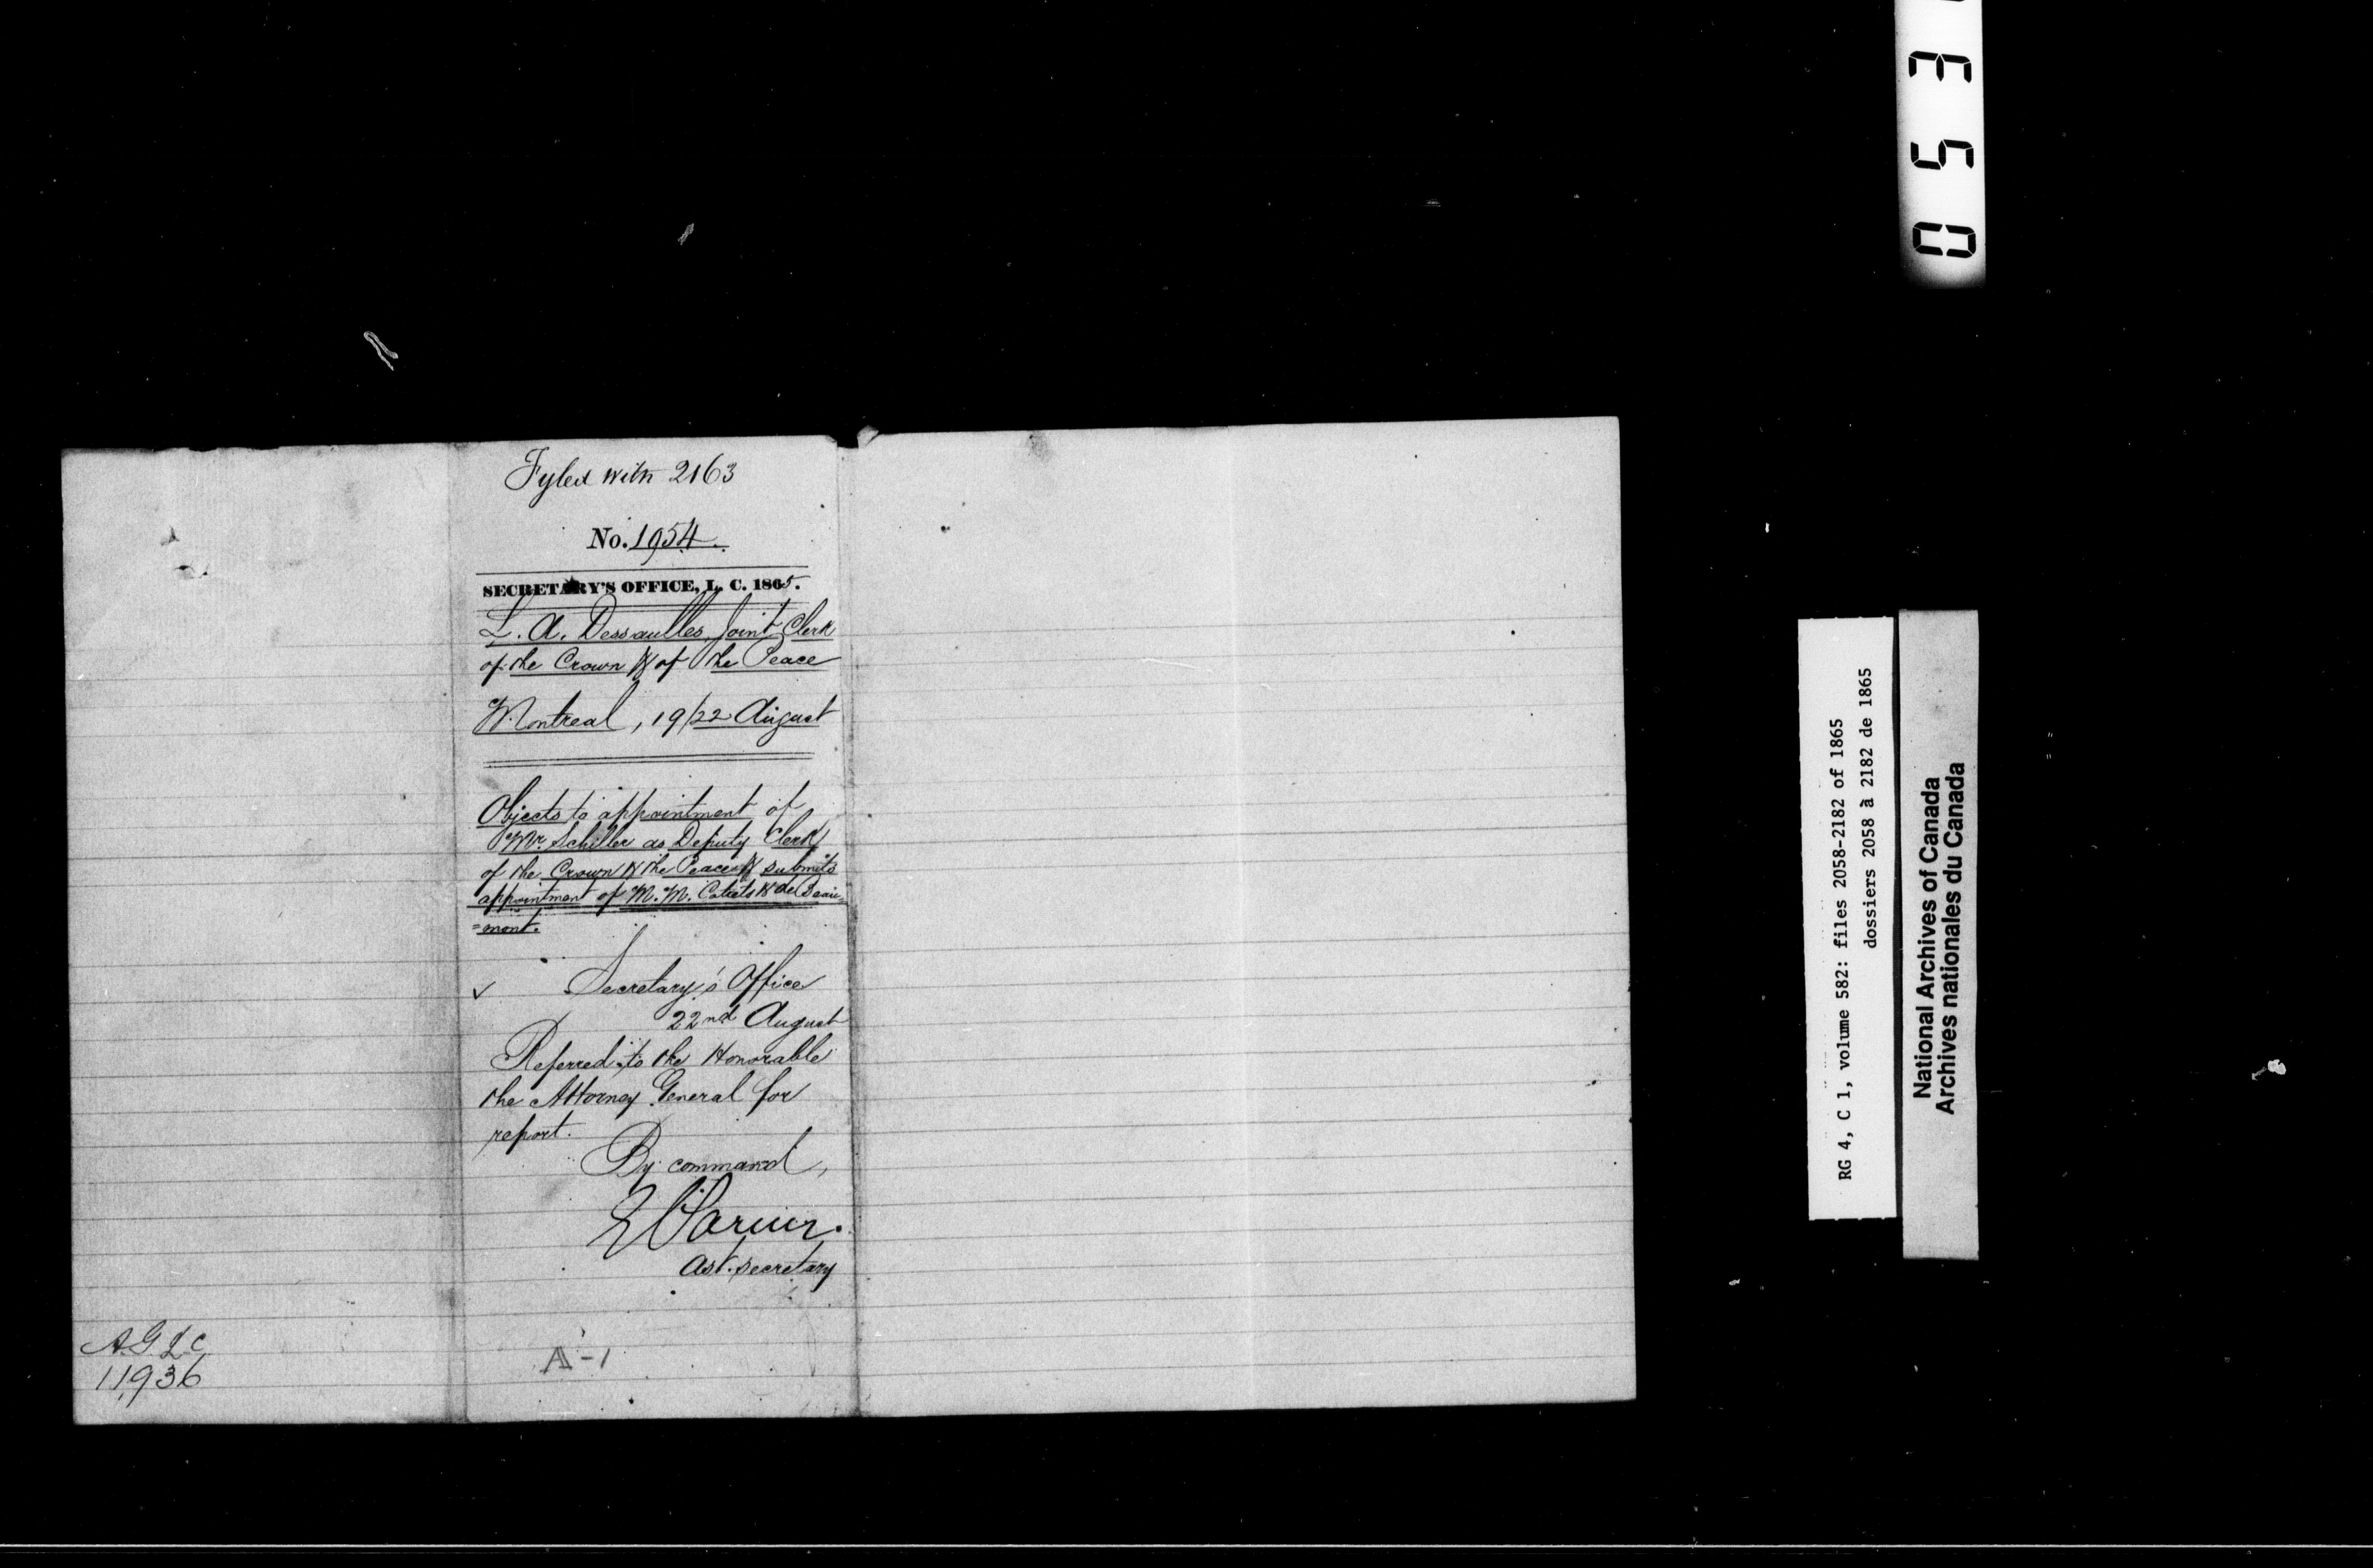 Fyled with 2163
No. 1954.
SECRETARY'S OFFICE, L. C. 1865.
L. A. Dessaulles, Joint Clerk
of the Crown & of the Peace
Montreal, 19/22 August
Objects to appointment of
Mr. Schiller as Deputy Clerk
of the Crown & the Peace & submits
appointment of M. M. & de Beau=
=mont.
Secretary's Office
22nd August
Referred to the Honorable
the Attorney General for
report.
By command,
Ast. secretary
A-1
A.G.L.C.
11936
053
RG 4, C 1, volume 582: files 2058-2182 of 1865
dossiers 2058 à 2182 de 1865
National Archives of Canada
Archives nationales du Canada